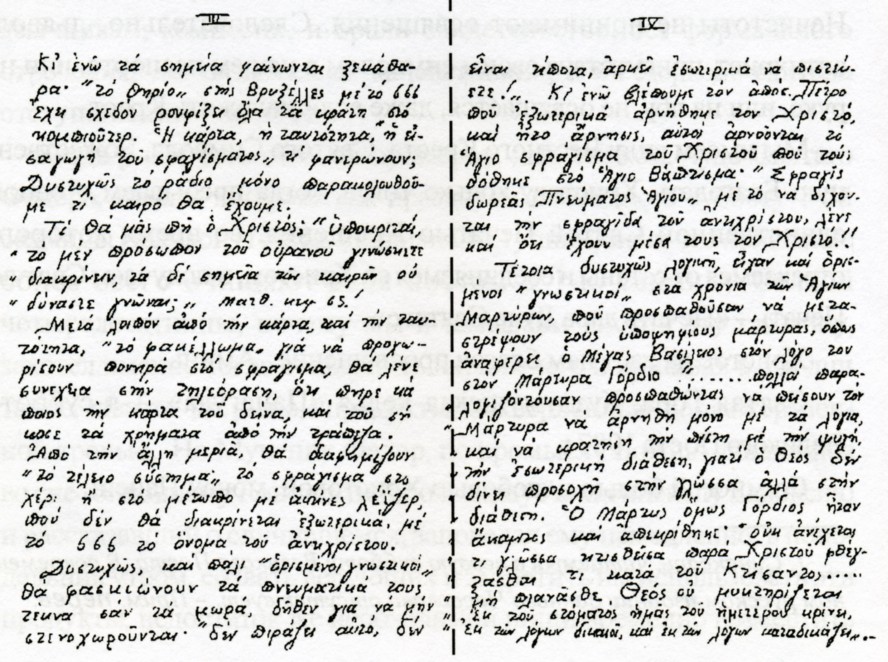 III
Κι ἐνῶ τὰ σημεῖα φαίνονται ξεκάθα-
ρα· "τὸ θηρίο" στὶς Βρυξέλλες μὲ τὸ 666
ἔχη σχεδὸν ρουφίξει ὅλα τὰ κράτη στὸ
κομπιοῦτερ. Ἡ κάρτα, ἡ ταυτότητα, ἡ εἰ-
σαγωγὴ τοῦ σφραγίσματος, τί φανερώνουν;
Δυστυχῶς στὸ ράδιο μόνο παρακολουθοῦ-
με τί καιρὸ θὰ ἔχουμε.
Τί θὰ μᾶς πῆ ὁ Χριστός; "Ὑποκριταί,
τὸ μὲν πρόσωπον τοῦ οὐρανοῦ γινώσκετε
διακρίνειν, τὰ δὲ σημεῖα τῶν καιρῶν οὐ
δύνασθε γνῶναι;" Ματθ.
Μετὰ λοιπὸν ἀπὸ τὴν κάρτα, καὶ τὴν ταυ-
τότητα, "τὸ φακέλλωμα", γιὰ νὰ προχω-
ρίσουν πονηρὰ στὸ σφράγισμα, θὰ λένε
συνέχεια στὴν Τηλεόραση, ὅτι πῆρε κά-
ποιος τὴν κάρτα τοῦ δεῖνα, καὶ τοῦ σή-
κωσε τὰ χρήματα ἀπὸ τὴν τράπεζα.
Ἀπὸ τὴν ἄλλη μεριά, θὰ διαφημίζουν
"τὸ τέλειο σύστημα" τὸ σφράγισμα στὸ
χέρι ἢ στὸ μέτωπο μὲ ἀκτῖνες λέϊζερ,
ποὺ δὲν θὰ διακρίνεται ἐξωτερικά, μὲ
τὸ 666 τὸ ὄνομα τοῦ ἀντιχρίστου.
Δυστυχῶς, καὶ πάλι "ὁρισμένοι γνωστικοὶ"
θὰ φασκιώνουν τὰ πνευματικά τους
τέκνα σὰν τὰ μωρά, δῆθεν γιὰ νὰ μὴν
στενοχωροῦνται. "Δὲν πειράζει αὐτό, δὲν
IV
εἶναι τίποτα, ἀρκεῖ ἐσωτερικὰ νὰ πιστεύ-
ετε!". Κι ἐνῶ βλέπουμε τὸν ἀπος. Πέτρο
ποὺ ἐξωτερικὰ ἀρνήθηκε τὸν Χριστό,
καὶ ἦτο ἄρνησις, αὐτοὶ ἀρνοῦνται τὸ
Ἅγιο σφράγισμα τοῦ Χριστοῦ ποὺ τοὺς
δόθηκε στὸ Ἅγιο Βάπτισμα "Σφραγὶς
δωρεᾶς Πνεύματος Ἁγίου", μὲ τὸ νὰ δέχων-
ται τὴν σφραγίδα τοῦ ἀντιχρίστου, λένε
καὶ ὅτι ἔχουν μέσα τους τὸν Χριστό!..
Τέτοια δυστυχῶς λογική, εἶχαν καὶ ὁρισ-
μένοι "γνωστικοί" στὰ χρόνια τῶν Ἁγίων
Μαρτύρων, ποὺ προσπαθοῦσαν νὰ μετα-
στρέψουν τοὺς ὑποψηφίους μάρτυρας, ὅπως
ἀναφέρει ὁ Μέγας Βασίλειος στὸν λόγο
στὸν Μάρτυρα Γόρδιο............ πολλοὶ παρα-
προσπαθῶντας νὰ πείσουν τὸν
Μάρτυρα νὰ ἀρνηθῆ μόνο μὲ τὰ λόγια,
καὶ νὰ κρατήση τὴν πίστη μὲ τὴν ψυχή,
τὴν ἐσωτερικὴ διάθεση, γιατὶ ὁ Θεὸς δὲν
δίνει προσοχὴ στὴν γλῶσσα ἀλλὰ στὴν
διάθεση. Ὁ Μάρτυς ὅμως Γόρδιος ἦταν
ἄκαμπτος καὶ ἀπεκρίθηκε: Οὐκ ἀνέχεται
ἡ γλῶσσα κτισθεῖσα παρὰ Χριστοῦ φθέγ-
ξασθαί τι κατὰ τοῦ Κτίσαντος.......
Μὴ πλανᾶσθε Θεὸς οὐ μυκτηρίζεται
ἐκ τοῦ στόματος ἡμᾶς τοῦ ἡμετέρου κρίνει,
ἐκ τῶν λόγων δικαιοῖ, καὶ ἐκ τῶν λόγων καταδικάζει"..-